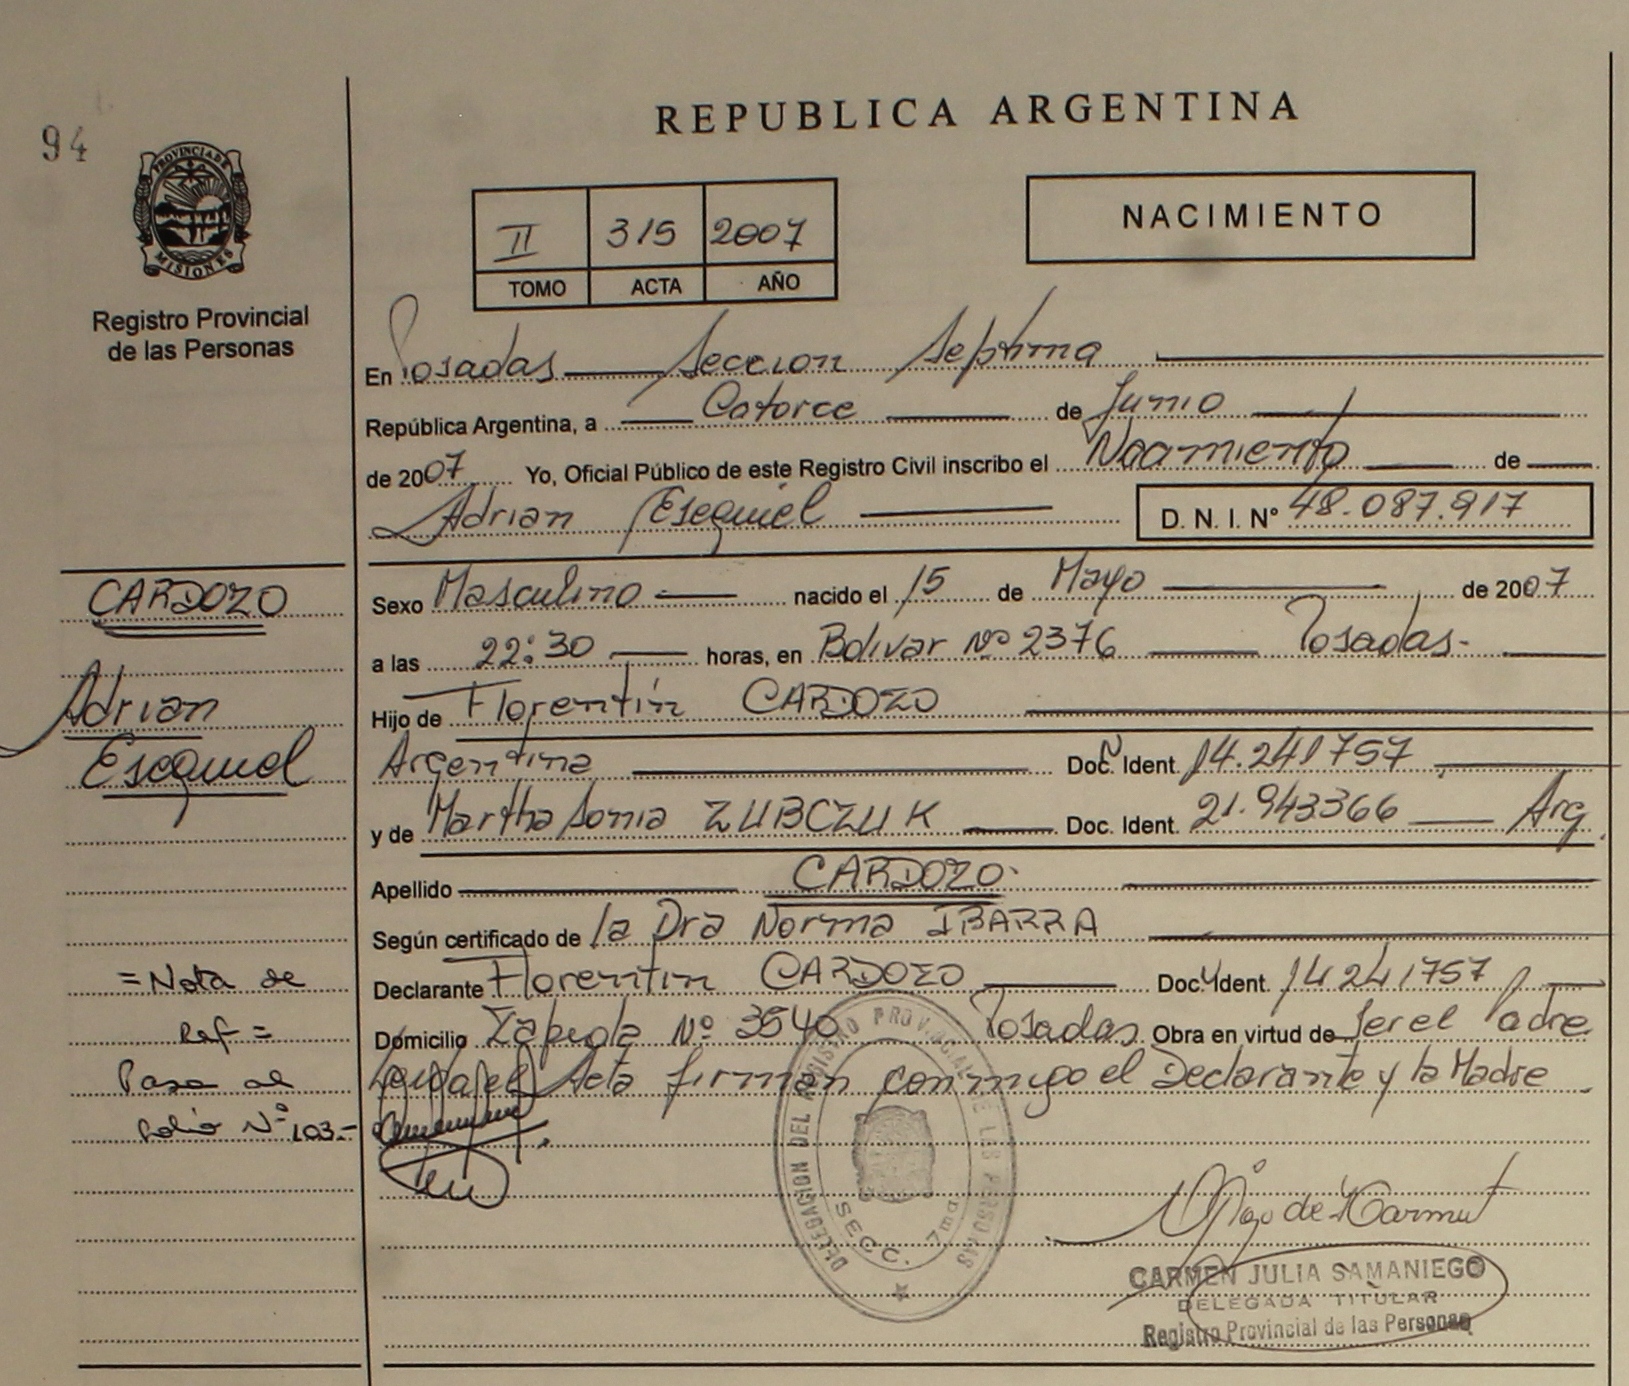 94
REPUBLICA ARGENTINA
PROVINCIA DE
MISIONES
Registro Provincial
de las Personas
II 315 2007
TOMO ACTA AÑO
NACIMIENTO
En Posadas Seccion Septima
República Argentina, a Catorce de Junio
de 2007 Yo, Oficial Público de este Registro Civil inscribo el Nacimiento de
Adrian Esequiel D. N. I. Nº 48.087.917
CARDOZO
Adrian
Esequiel
Sexo Masculino nacido el 15 de Mayo de 2007
a las 22:30 horas, en Bolivar Nº 2376 Posadas-
Hijo de Florentín CARDOZO
Argentina Doc. Ident. 14.241757
y de Martha Sonia ZUBCZUK Doc. Ident. 21.943366 Arg.
Apellido CARDOZO
Según certificado de la Dra Norma IBARRA
Declarante Florentin CARDOZO Doc. Ident. 14241757
Domicilio Zapiola Nº 3540 Posadas Obra en virtud de Ser el Padre
Leida el Acta firman conmigo el Declarante y la Madre
=Nota de
Ref=
Pasa al
folio Nº 103.-
DELEGACION DEL REGISTRO PROVINCIAL DE LAS PERSONAS
SECC. 7ma
CARMEN JULIA SAMANIEGO
DELEGADA TITULAR
Registro Provincial de las Personas